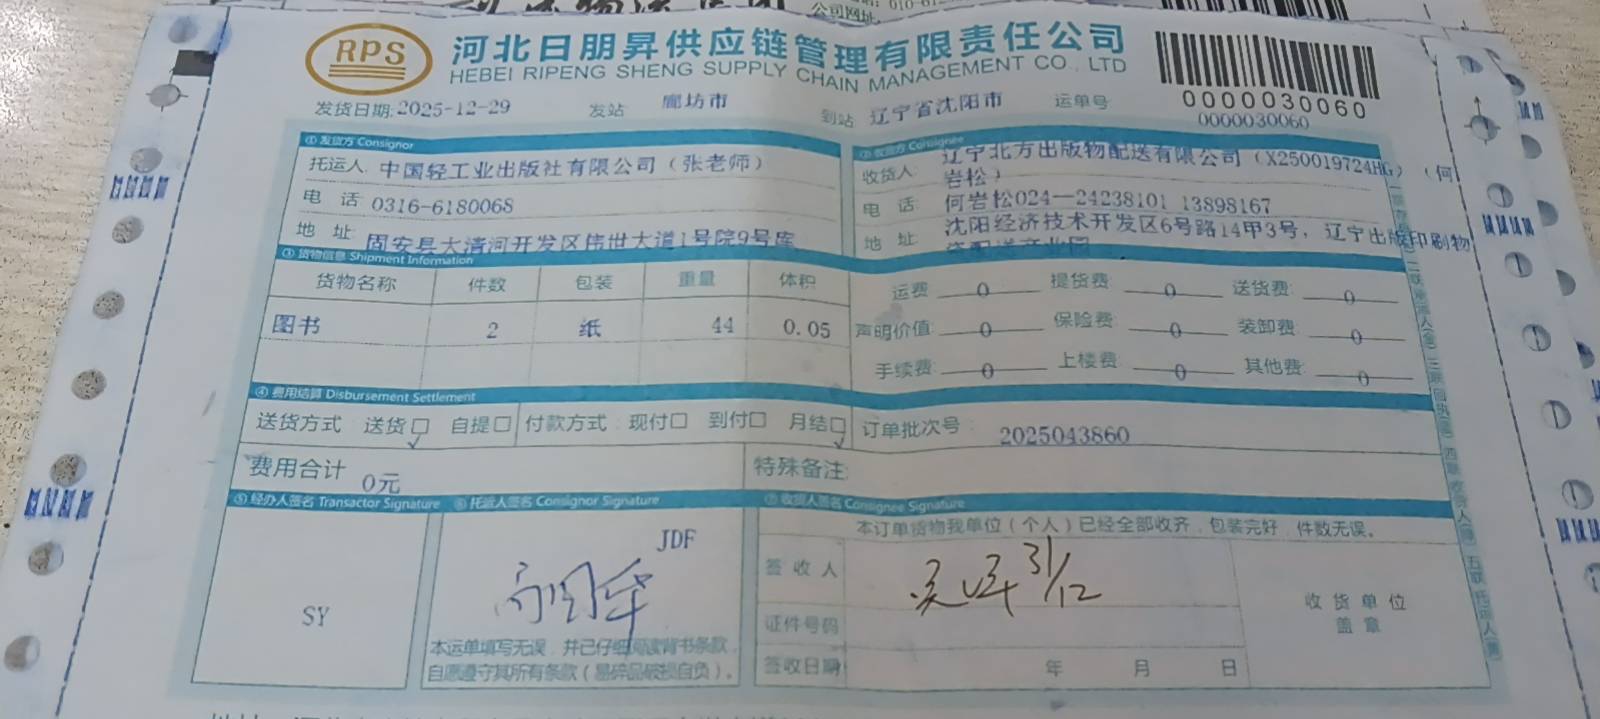 公司网址:
RPS
河北日朋昇供应链管理有限责任公司
HEBEI RIPENG SHENG SUPPLY CHAIN MANAGEMENT CO., LTD
0000030060
发货日期:2025-12-29 发站 廊坊市 到站 辽宁省沈阳市 运单号 0000030060
① 发货方 Consignor
托运人 中国轻工业出版社有限公司（张老师）
电 话 0316-6180068
地 址 固安县大清河开发区伟世大道1号院9号库
② 收货方 Consignee
收货人 辽宁北方出版物配送有限公司（X250019724HG）（何
岩松）
电 话: 何岩松024—24238101 13898167
地 址 沈阳经济技术开发区6号路14甲3号，辽宁出版印刷物
资配送产业园
③ 货物信息 Shipment Information
货物名称 件数 包装 重量 体积
图书 2 纸 44 0.05
运费 0 提货费: 0 送货费: 0
声明价值: 0 保险费: 0 装卸费: 0
手续费: 0 上楼费: 0 其他费: 0
④ 费用结算 Disbursement Settlement
送货方式 送货□✓ 自提□ 付款方式: 现付□ 到付□ 月结□✓ 订单批次号: 2025043860
费用合计 0元 特殊备注:
⑤ 经办人签名 Transactor Signature ⑥ 托运人签名 Consignor Signature ⑦ 收货人签名 Consignee Signature
SY
JDF
本运单填写无误，并已仔细阅读背书条款，
自愿遵守其所有条款（易碎品破损自负）。
本订单货物我单位（个人）已经全部收齐，包装完好，件数无误。
签 收 人 31/12
证件号码
签收日期 年 月 日
收 货 单 位
盖 章